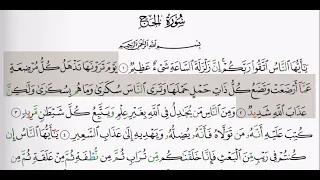 سورة الحج
بسم الله الرحمن الرحيم
يَـٰٓأَيُّهَا ٱلنَّاسُ ٱتَّقُوا۟ رَبَّكُمْ إِنَّ زَلْزَلَةَ ٱلسَّاعَةِ شَىْءٌ عَظِيمٌ ١ يَوْمَ تَرَوْنَهَا تَذْهَلُ كُلُّ مُرْضِعَةٍ
عَمَّآ أَرْضَعَتْ وَتَضَعُ كُلُّ ذَاتِ حَمْلٍ حَمْلَهَا وَتَرَى ٱلنَّاسَ سُكَـٰرَىٰ وَمَا هُم بِسُكَـٰرَىٰ وَلَـٰكِنَّ
عَذَابَ ٱللَّهِ شَدِيدٌ ٢ وَمِنَ ٱلنَّاسِ مَن يُجَـٰدِلُ فِى ٱللَّهِ بِغَيْرِ عِلْمٍ وَيَتَّبِعُ كُلَّ شَيْطَـٰنٍ مَّرِيدٍ ٣
كُتِبَ عَلَيْهِ أَنَّهُۥ مَن تَوَلَّاهُ فَأَنَّهُۥ يُضِلُّهُۥ وَيَهْدِيهِ إِلَىٰ عَذَابِ ٱلسَّعِيرِ ٤ يَـٰٓأَيُّهَا ٱلنَّاسُ إِن
كُنتُمْ فِى رَيْبٍ مِّنَ ٱلْبَعْثِ فَإِنَّا خَلَقْنَـٰكُم مِّن تُرَابٍ ثُمَّ مِن نُّطْفَةٍ ثُمَّ مِنْ عَلَقَةٍ ثُمَّ مِن